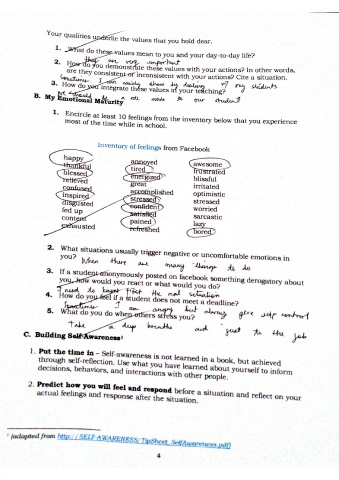 Your qualities underlie the values that you hold dear.
1. What do these values mean to you and your day-to-day life?
they are very important
2. How do you demonstrate these values with your actions? In other words,
are they consistent or inconsistent with your actions? Cite a situation.
sometimes I can easily show by dealing my students
3. How do you integrate these values in your teaching?
to our student
B. My Emotional Maturity
1. Encircle at least 10 feelings from the inventory below that you experience
most of the time while in school.
Inventory of feelings from Facebook
happy annoyed awesome
thankful tired frustrated
blessed energized blissful
relieved great irritated
confused accomplished optimistic
inspired stressed stressed
disgusted confident worried
fed up satisfied sarcastic
content pained lazy
exhausted refreshed bored
2. What situations usually trigger negative or uncomfortable emotions in
you? When there are many things to do
3. If a student anonymously posted on facebook something derogatory about
you, how would you react or what would you do?
I need to know first the real situation
4. How do you feel if a student does not meet a deadline?
Sometimes I am angry but always give self control
5. What do you do when others stress you?
Take a deep breathe and just to the job
C. Building Self-Awareness¹
1. Put the time in – Self-awareness is not learned in a book, but achieved
through self-reflection. Use what you have learned about yourself to inform
decisions, behaviors, and interactions with other people.
2. Predict how you will feel and respond before a situation and reflect on your
actual feelings and response after the situation.
¹ (adapted from http://SELF-AWARENESS/TipSheet_SelfAwareness.pdf)
4